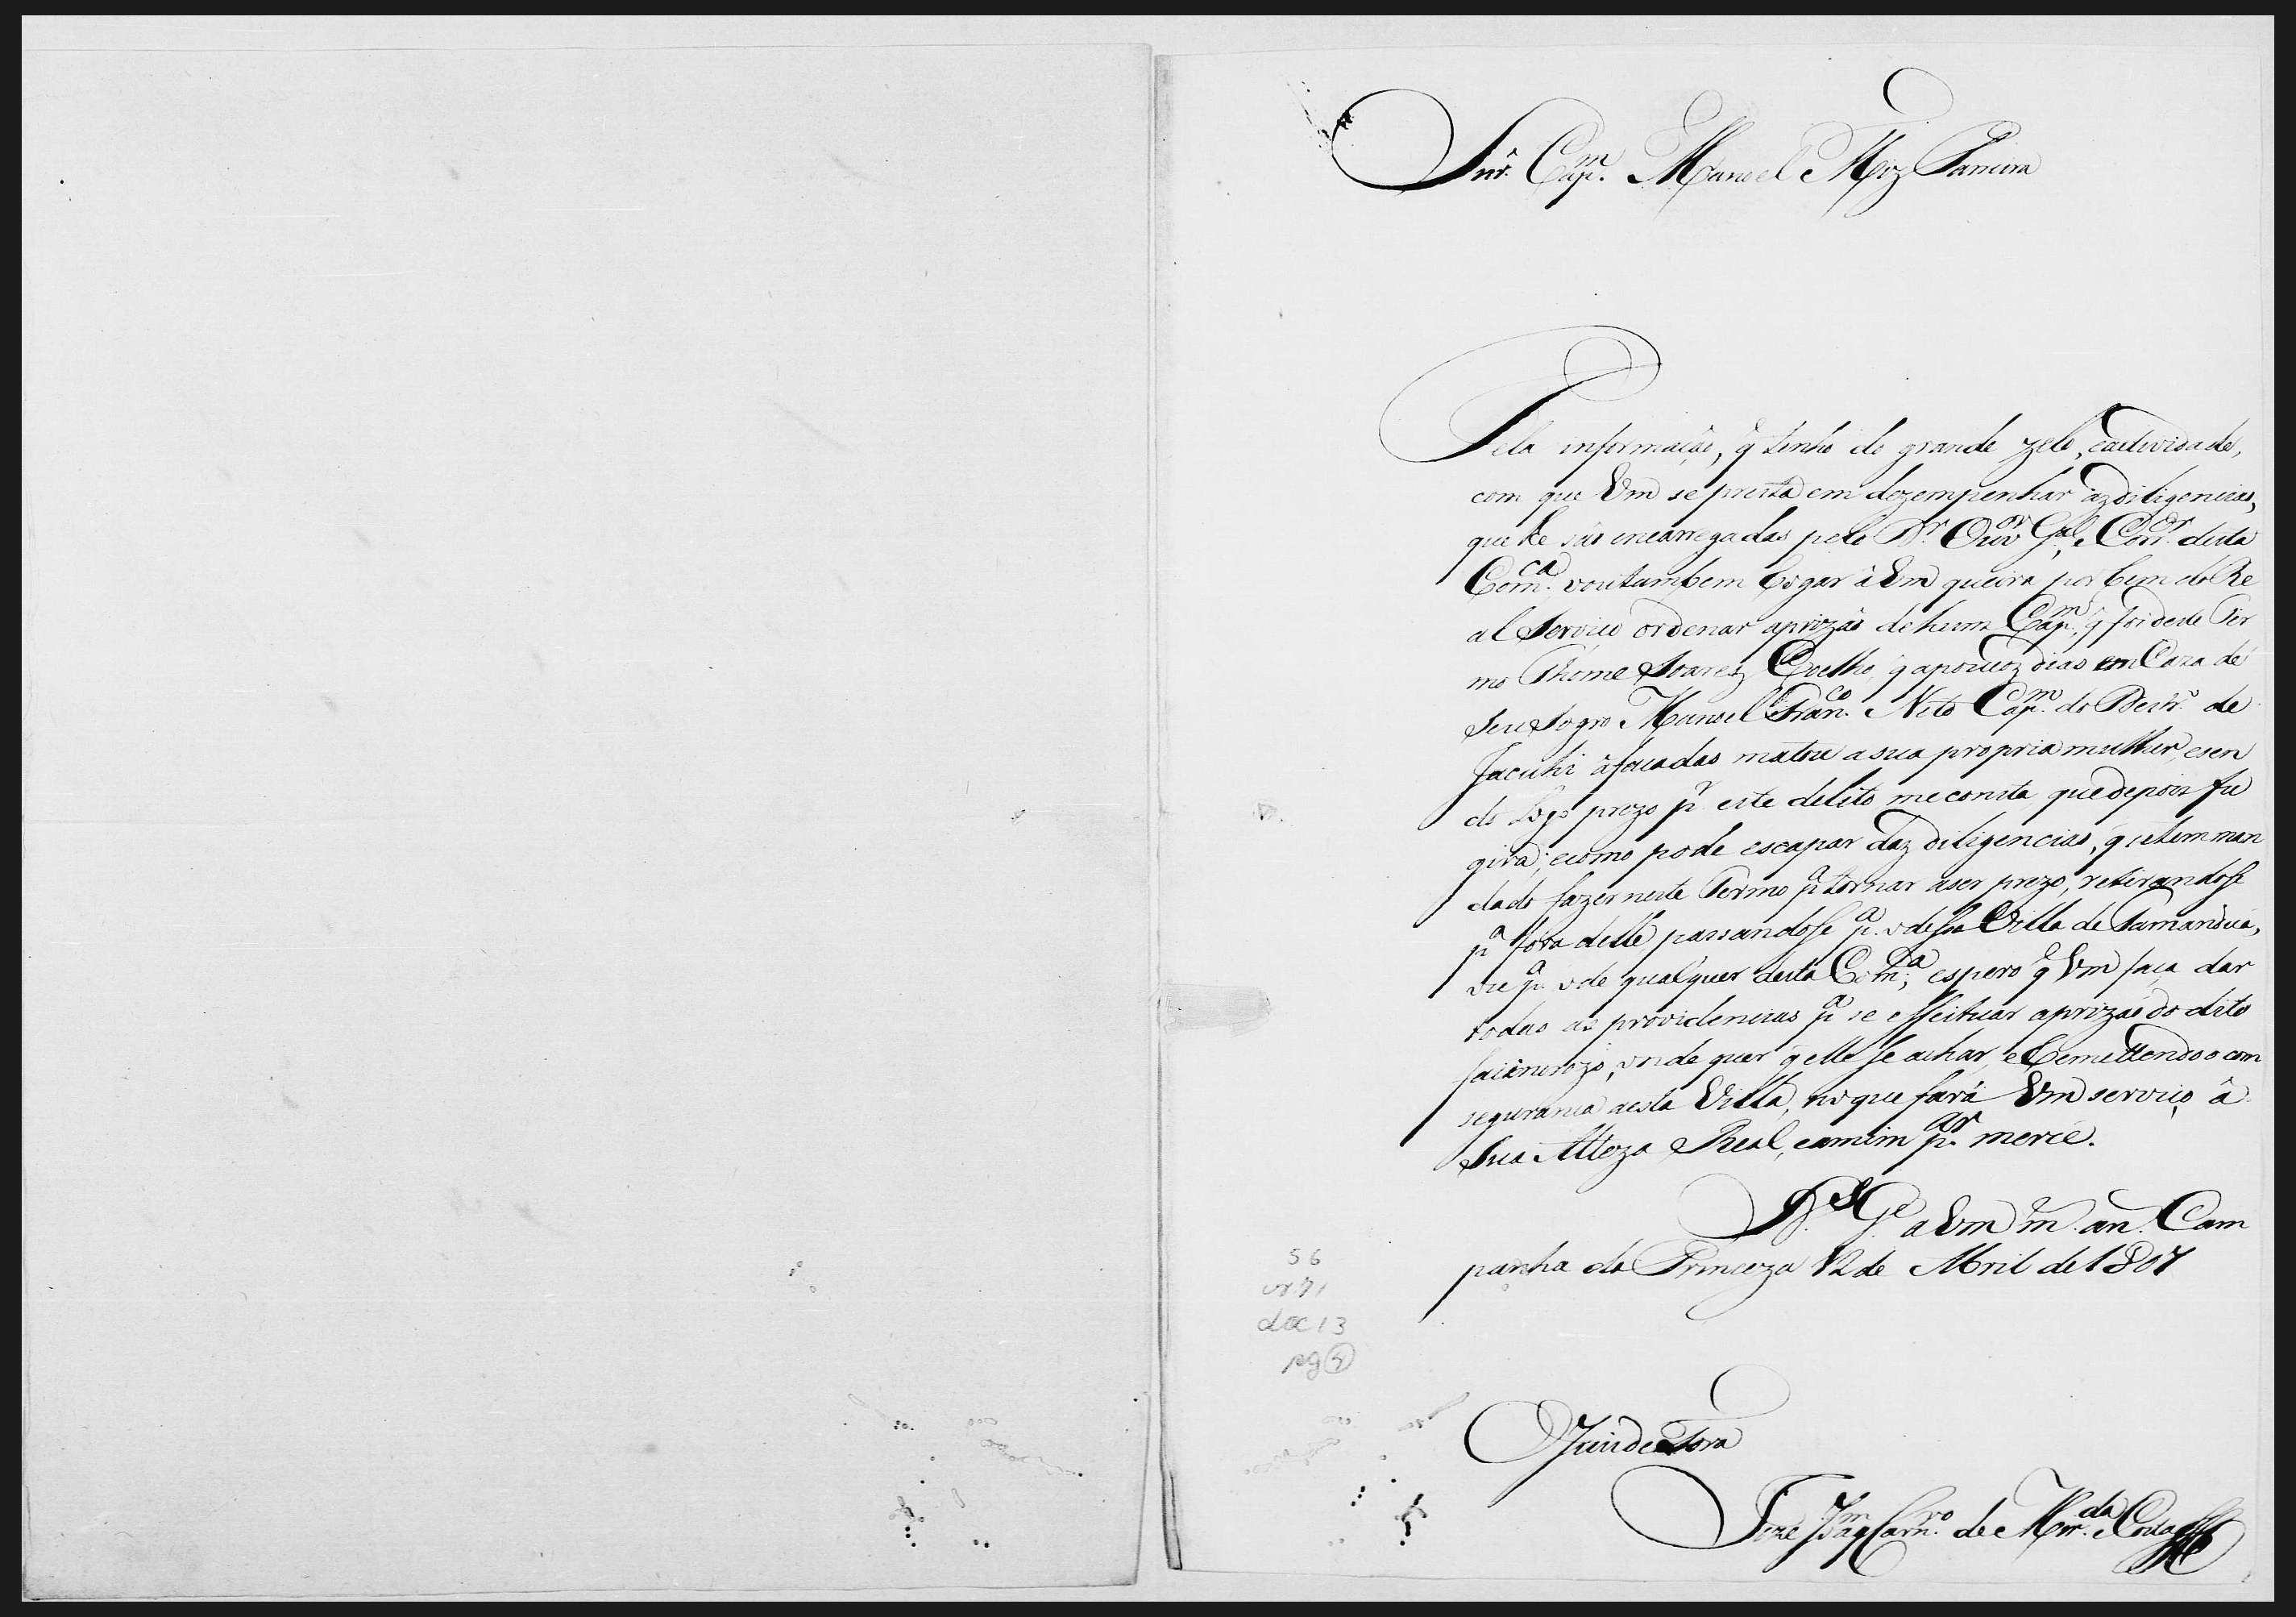 Snr. Cap.m Manoel Miz Pamcira
Pela informação, q tenho do grande zelo, eactividade,
com que Vm se presta em dezempenhar az diligencias,
que lhe são encarregadas pelo Dr. Ouv.or G.al, e Corr.or desta
Com.ca vou tambem Rogar â Vm queira por bem do Re
al Serviço ordenar aprizão de hum Cap.m, q foi deste Ter
mo Thome Soarez Coelho, q apoucoz dias em Caza de
Seu Sogro Manoel Fran.co Neto Cap.m do Destr.o de
Jacuhi âfacadas matou a sua propria mulher, esen
do Logo prezo p.r este delito me consta que depois fu
gira; ecomo pode escapar daz diligencias, q setem man
dado fazer neste Termo p.a tornar aser prezo, retirandosse
p.a fóra delle, passandosse p.a o dessa Villa de Tamanduá,
ou p.a o de qualquer desta Com.ca, espero q Vm faça dar
todas as providencias p.a se effeituar aprizão do dito
facinorozo, onde quer q elle se achar, e Remettendo o com
segurança aesta Villa, no que fará Vm serviço â
Sua Alteza Real, eamim p.ar mercê.
D.s G.e a Vm m. an. Cam
panha da Princeza 12 de Abril de 1807
56
cx 71
doc 13
pg 2
O Juiz de Fora
Joze Joaq.m Carn.ro de Mir.da e Costa